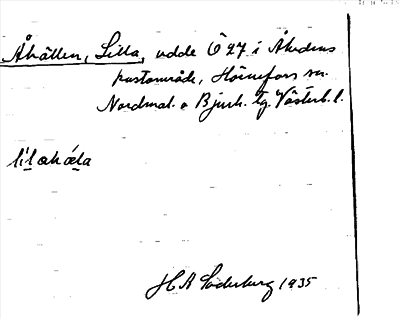 Åhällen, Lilla, udde Ö 27 i Åhedens
kustområde, Hörnefors sn.
Nordmal. o Bjurh. tg. Västerb. l.
lìlahǽla
H A Söderberg 1935